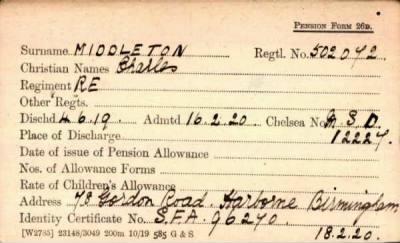 PENSION FORM 26D.
Surname MIDDLETON Regtl. No. 502072.
Christian Names Charles
Regiment RE
Other Regts.
Dischd 4.6.19. Admtd 16.2.20. Chelsea No. M S D.
Place of Discharge 12227.
Date of issue of Pension Allowance
Nos. of Allowance Forms
Rate of Children's Allowance
Address 78 Gordon Road. Harborne Birmingham
Identity Certificate No. S.F.A. 96270.
[W2785] 23148/3049 200m 10/19 585 G & S 18.2.20.